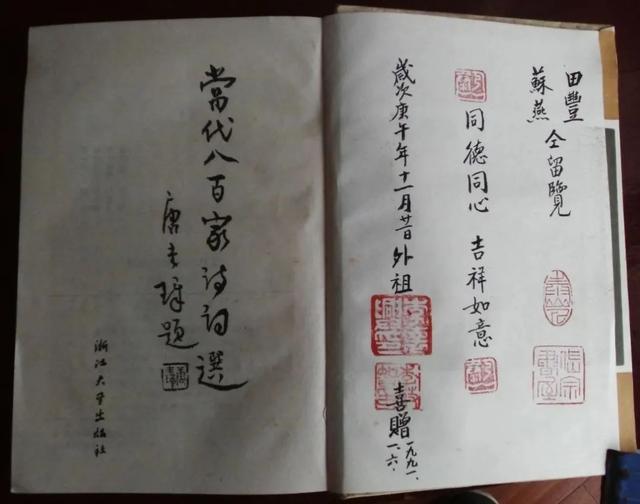 田豐
蘇燕
仝留覽
同德同心 吉祥如意
歲次庚午年十一月廿一日外祖
喜贈
一九九一.
一.六.
當代八百家詩詞選
題
浙江大學出版社